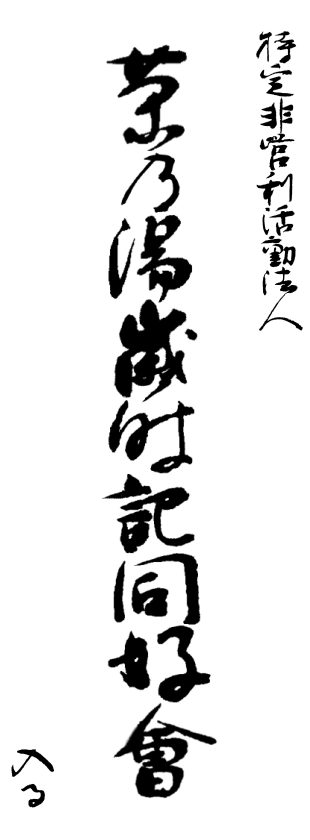 特定非営利活動法人
茶乃湯歳時記同好會